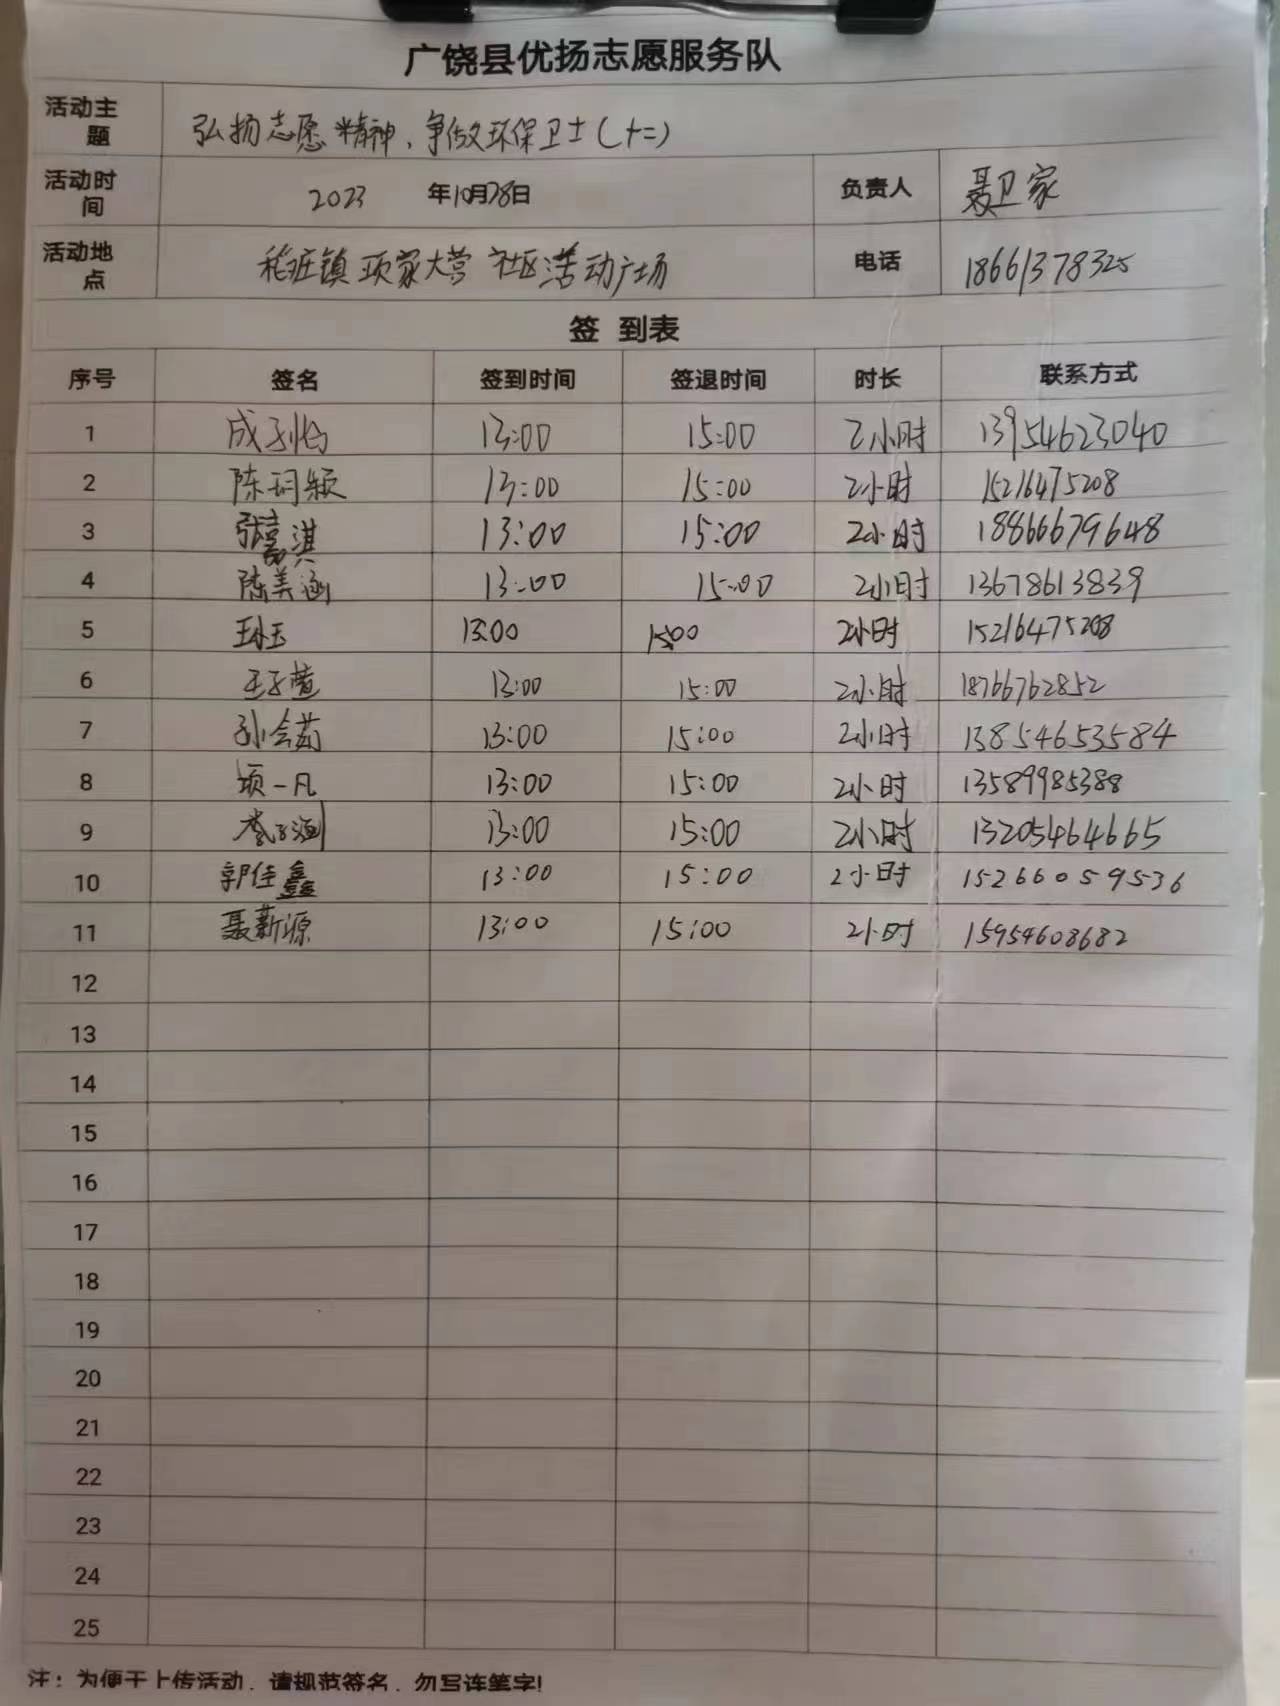 广饶县优扬志愿服务队
活动主题 弘扬志愿精神、争做环保卫士(十二)
活动时间 2023 年10月28日 负责人 聂卫家
活动地点 稻庄镇项家大营社区活动广场 电话 18661378325
签 到表
序号 签名 签到时间 签退时间 时长 联系方式
1 成子怡 13:00 15:00 2小时 13954623040
2 陈玥颖 13:00 15:00 2小时 15216475208
3 张嘉淇 13:00 15:00 2小时 18866679648
4 陈美涵 13:00 15:00 2小时 13678613839
5 13:00 15:00 2小时 15216475208
6 王子萱 13:00 15:00 2小时 18766762852
7 孙会茹 13:00 15:00 2小时 13854653584
8 项一凡 13:00 15:00 2小时 13589985388
9 李子涵 13:00 15:00 2小时 13205464665
10 郭佳鑫 13:00 15:00 2小时 15266059536
11 聂新源 13:00 15:00 2小时 15954608682
12
13
14
15
16
17
18
19
20
21
22
23
24
25
注：为便于上传活动，请规范签名，勿写连笔字!